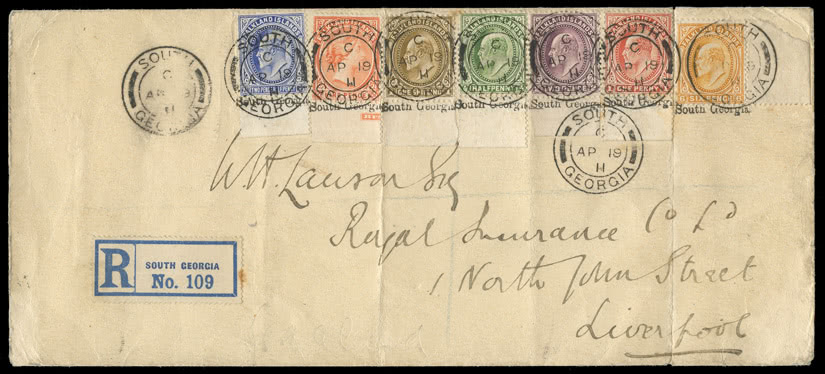 FALKLAND ISLANDS
SOUTH GEORGIA
C
AP 19
11
SOUTH GEORGIA
C
AP 19
11
SOUTH GEORGIA
C
AP 19
11
SOUTH GEORGIA
C
AP 19
11
South Georgia
South Georgia
South Georgia
South Georgia
South Georgia
South Georgia
South Georgia
HALFPENNY
ONE PENNY
SIX PENCE
SOUTH
C
AP 19
11
GEORGIA
W. H. Lawson Esq
Royal Insurance Co Ld
1 North John Street
Liverpool
R
SOUTH GEORGIA
No. 109